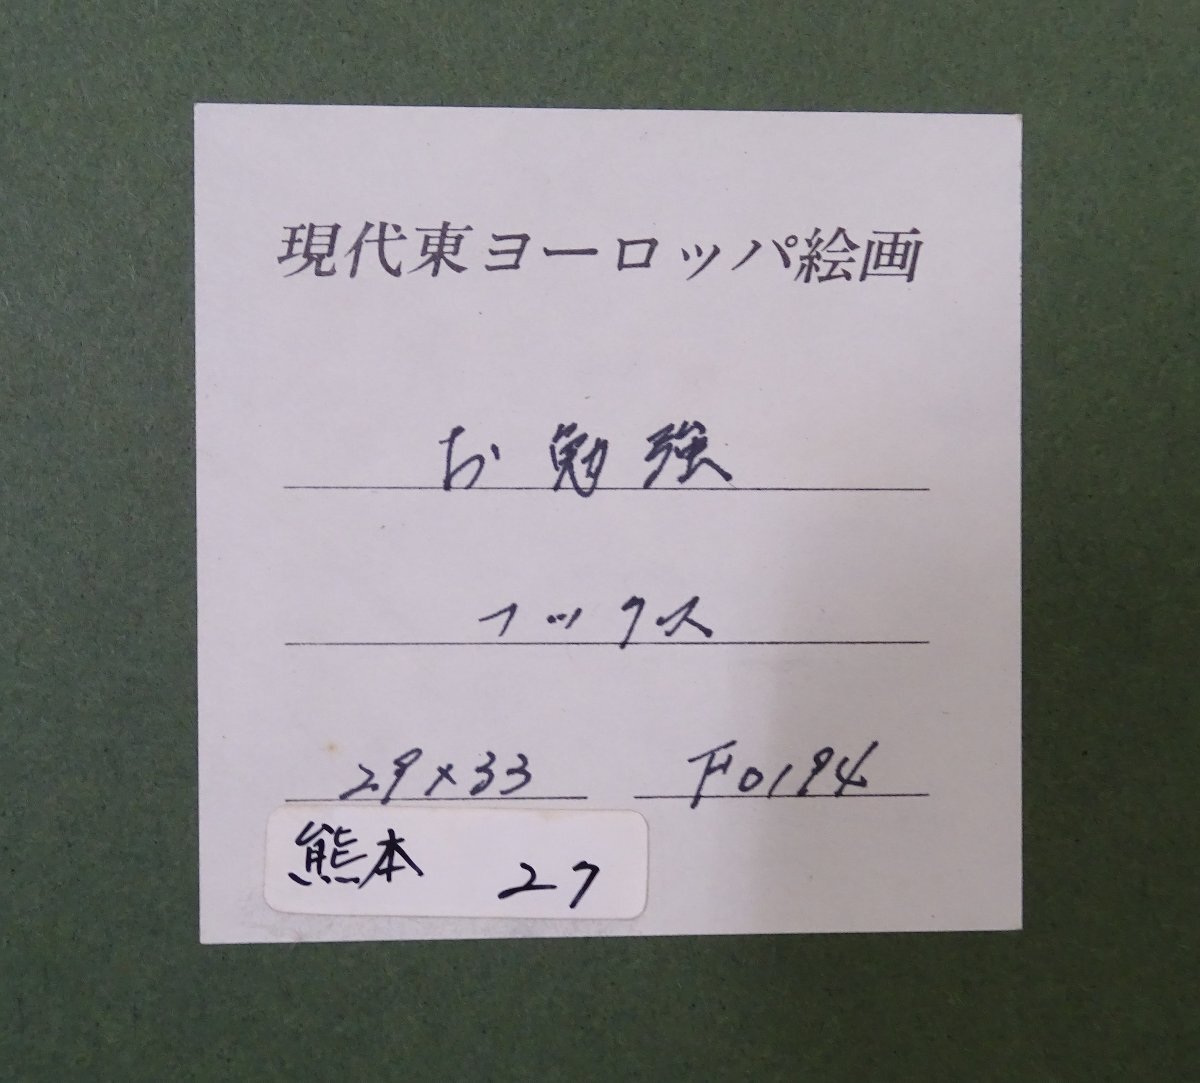 現代東ヨーロッパ絵画
お勉強
フックス
29×33 F0194
熊本 27